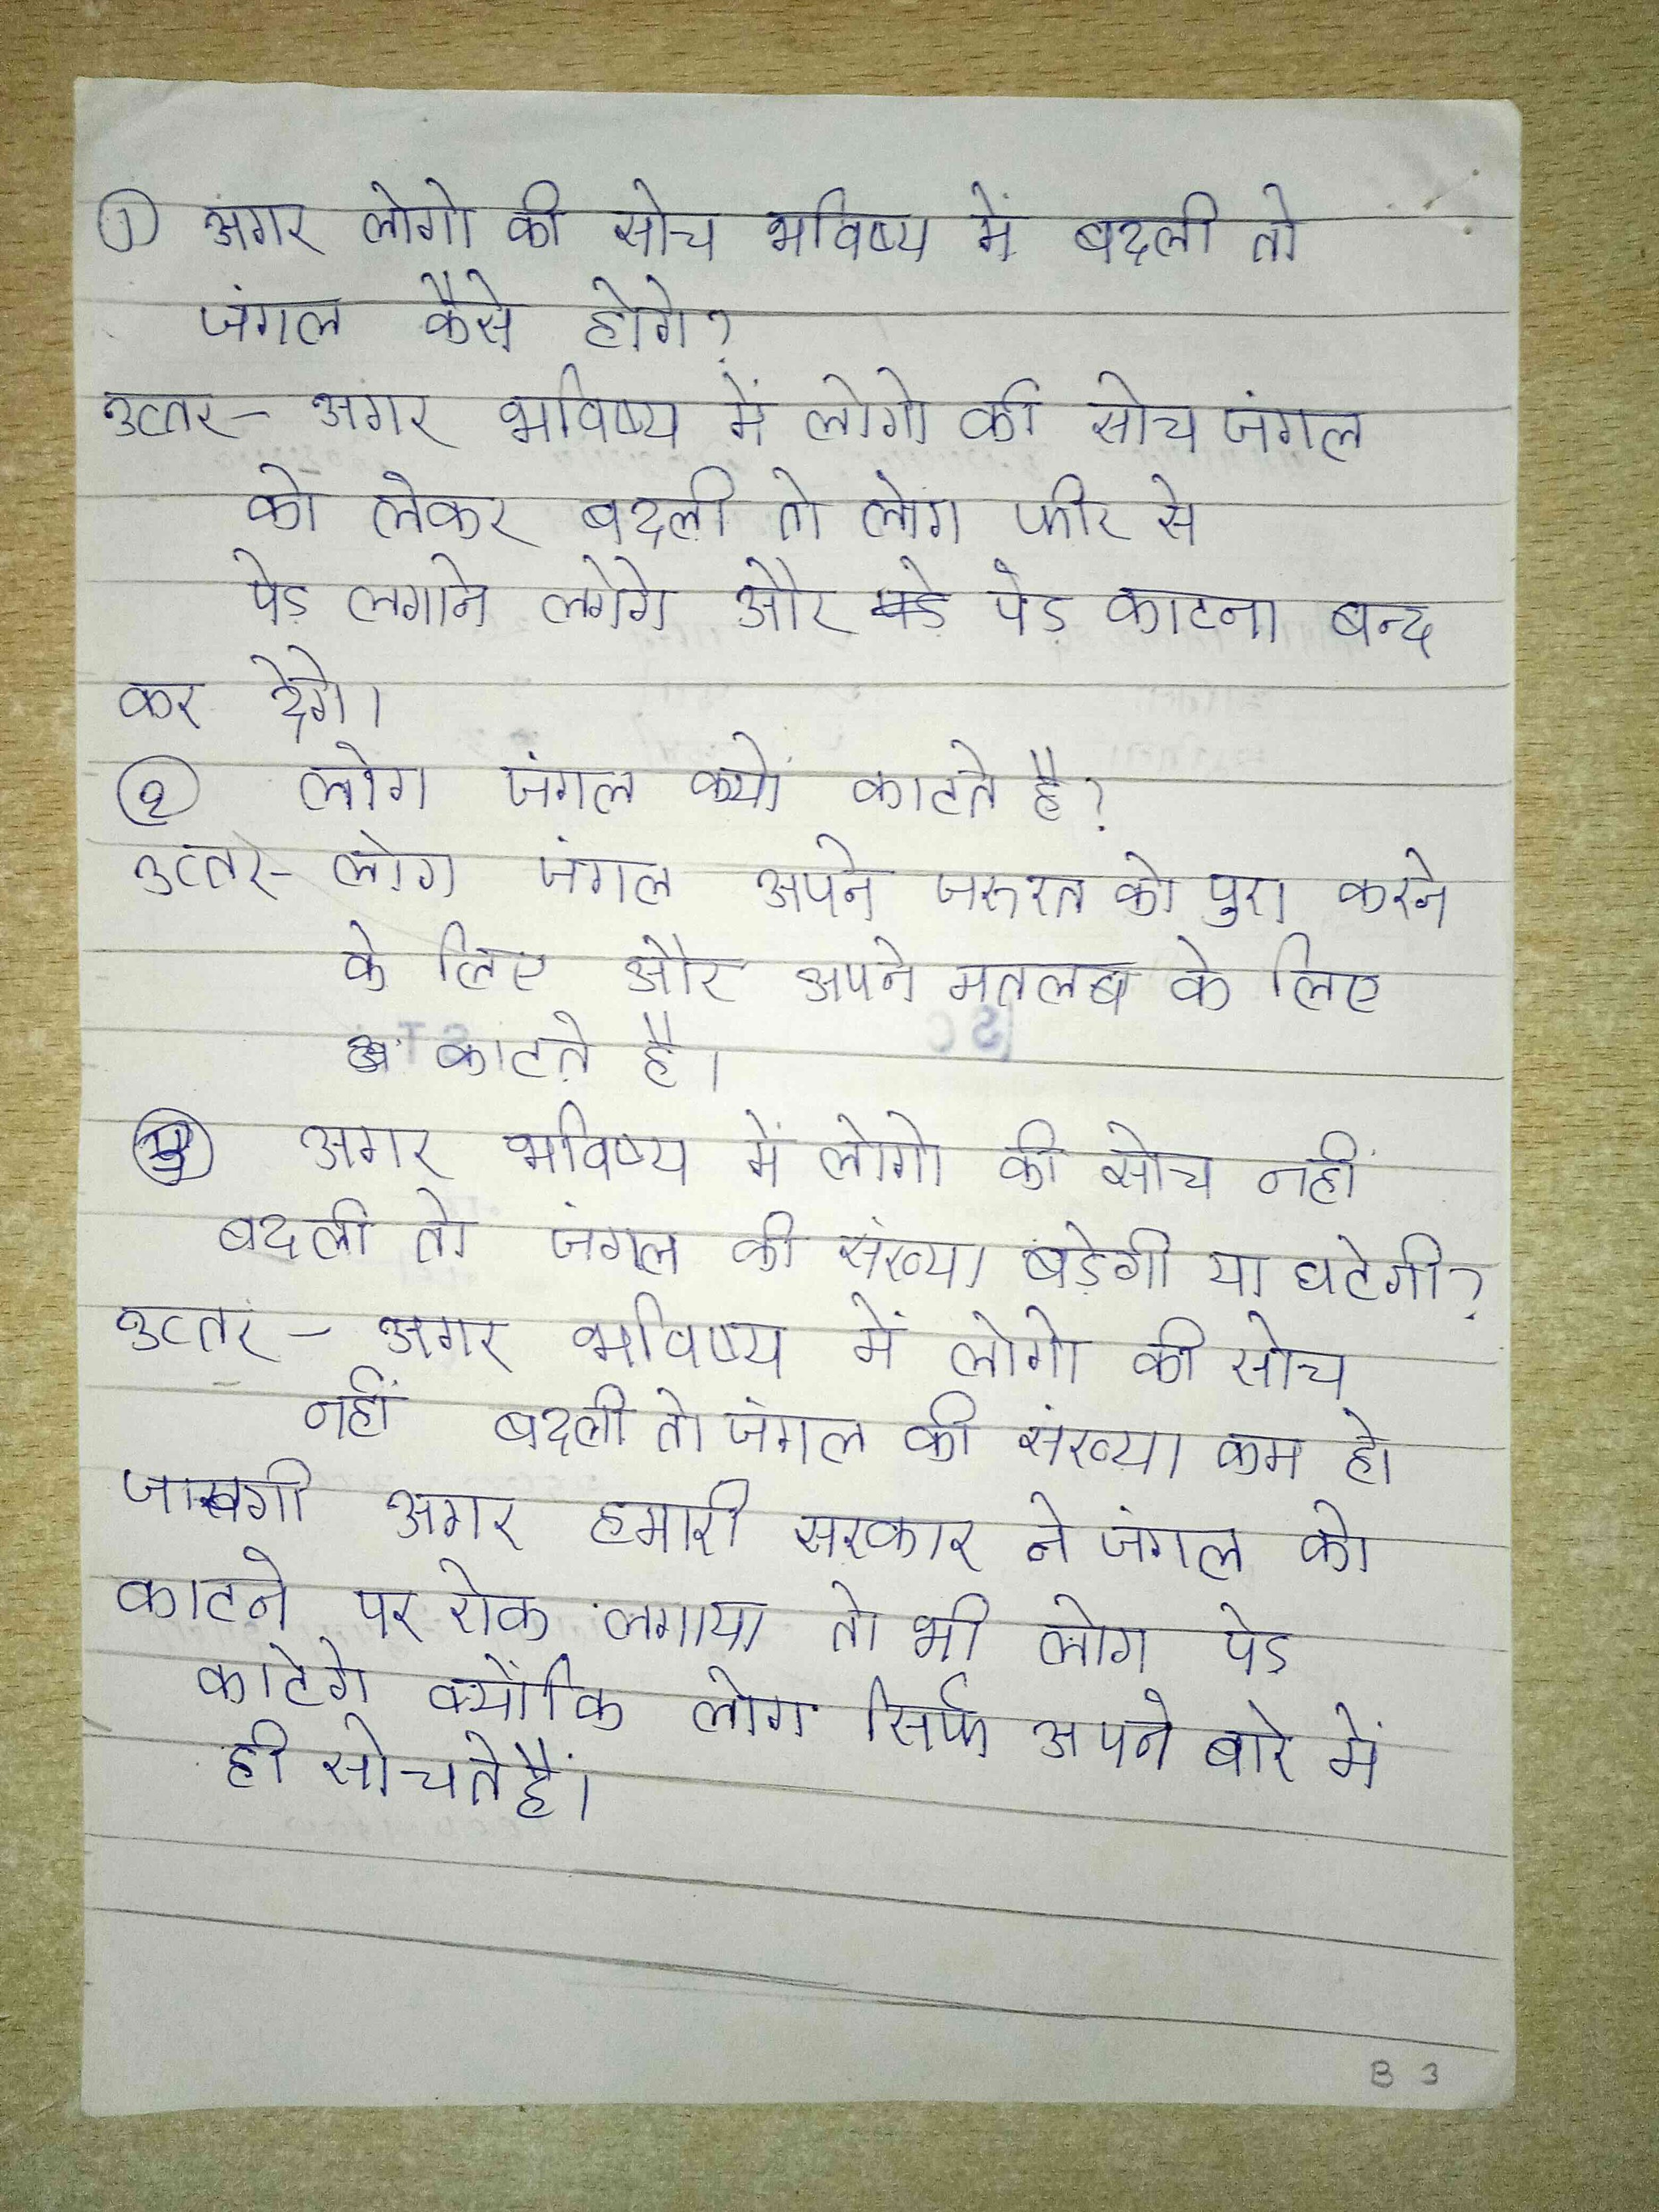 ① अगर लोगो की सोच भविष्य में बदली तो
जंगल कैसे होगे?
उत्तर - अगर भविष्य में लोगो की सोच जंगल
को लेकर बदली तो लोग फीर से
पेड़ लगाने लगेगे और पेड़ काटना बन्द
कर देगे।
② लोग जंगल क्यों काटते है?
उत्तर - लोग जंगल अपने जरुरत को पुरा करने
के लिए और अपने मतलब के लिए
काटते है।
अगर भविष्य में लोगो की सोच नहीं
बदली तो जंगल की संख्या बड़ेगी या घटेगी?
उत्तर - अगर भविष्य में लोगो की सोच
नहीं बदली तो जंगल की संख्या कम हो
अगर हमारी सरकार ने जंगल को
काटने पर रोक लगाया तो भी लोग पेड
काटेगे क्योंकि लोग सिर्फ अपने बारे में
ही सोचते हैं।
B 3